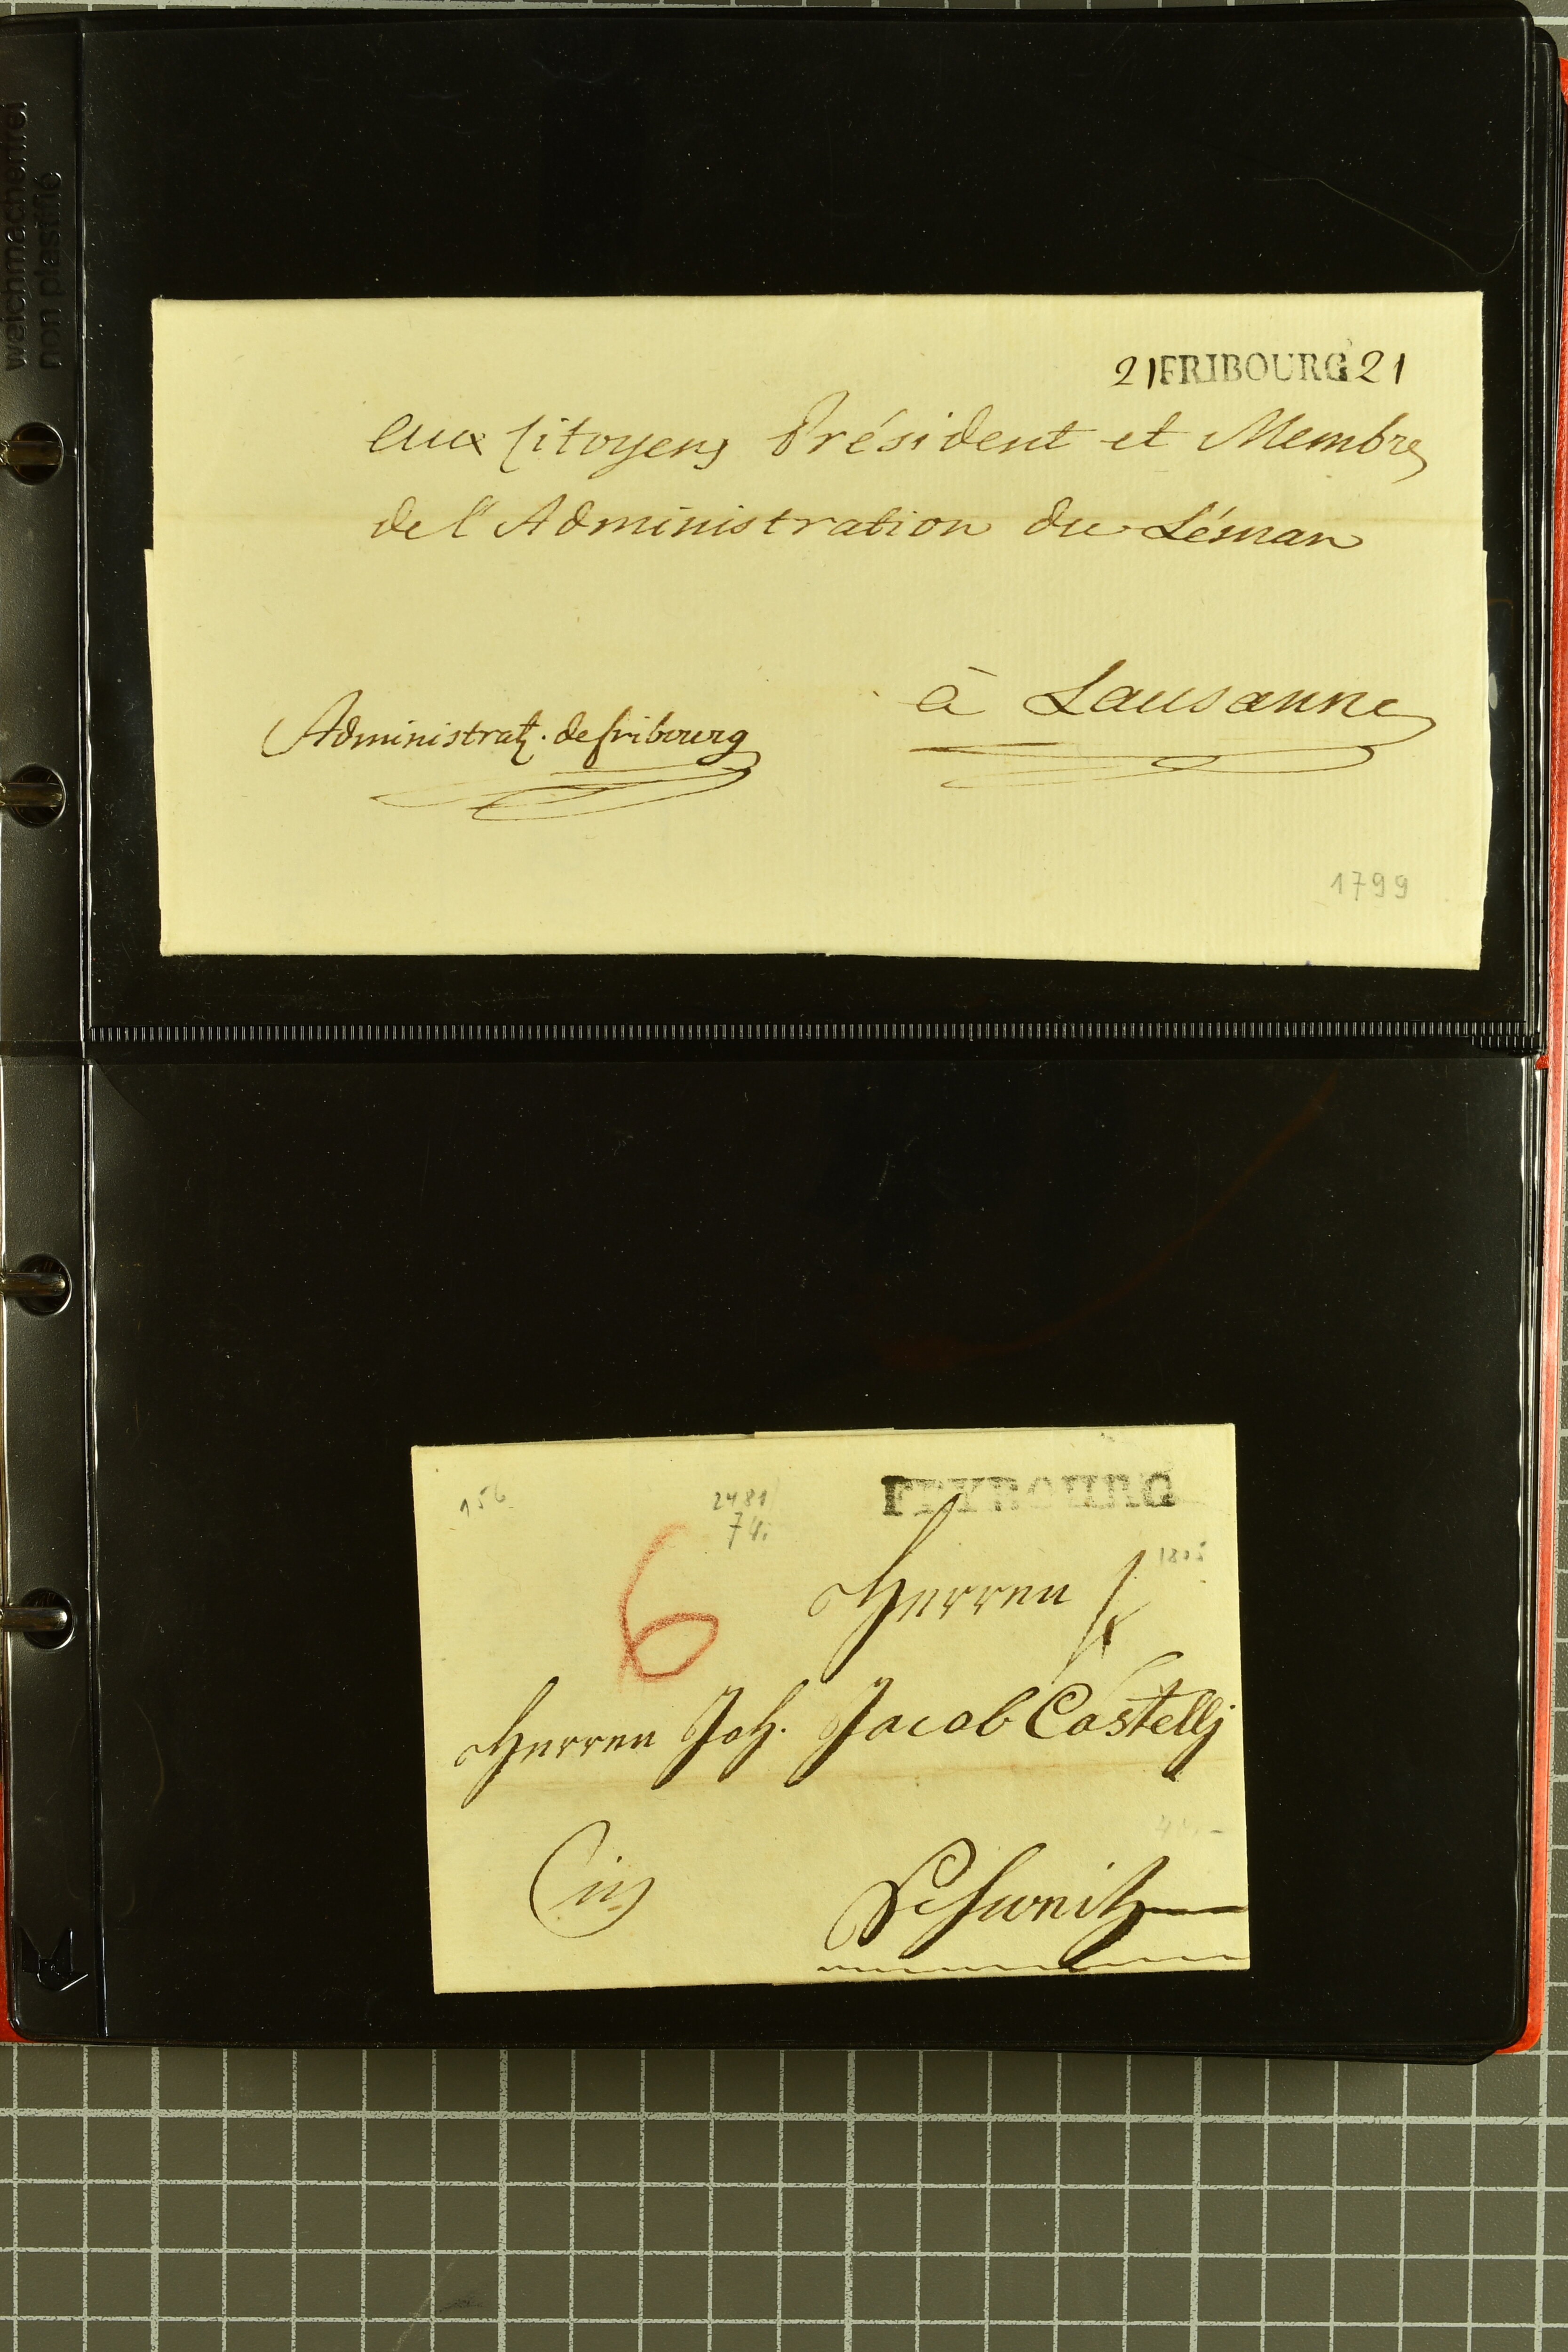 weichmacherfrei
non plastifié
21 FRIBOURG 21
aux Citoyens Président et Membres
de l'Administration du Léman
à Lausanne
Administrat. de fribourg
1799
156
2481
74.
FRYBOURG
6
Herren
1805
Herren Joh. Jacob Castellj
Schweitz